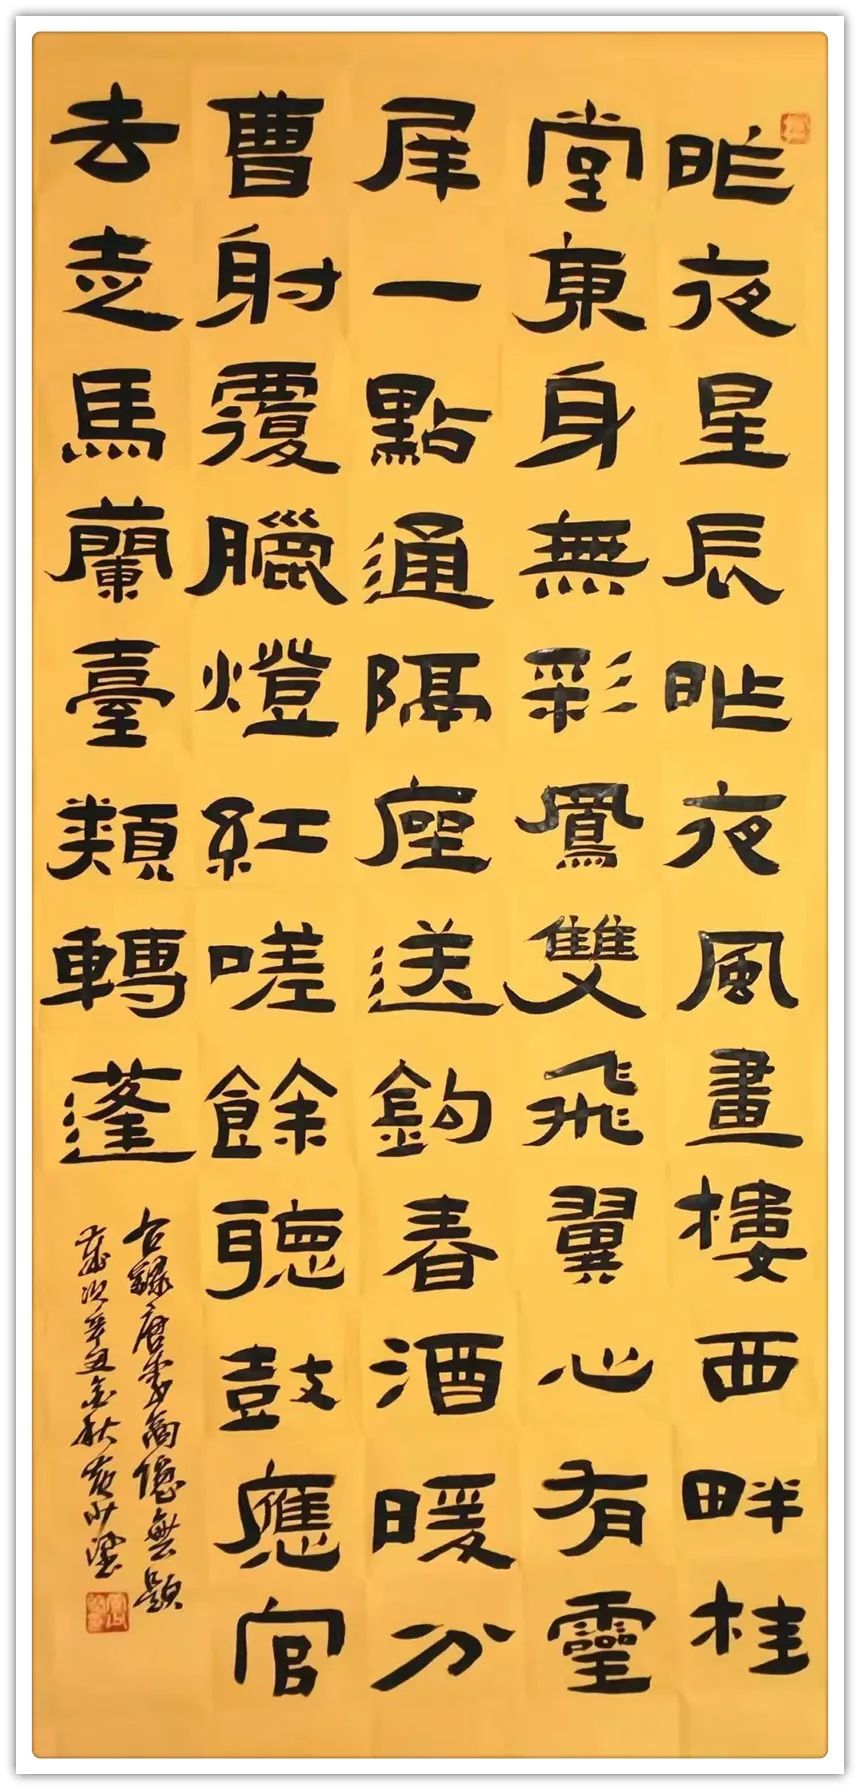 昨夜星辰昨夜風畫樓西畔桂
堂東身無彩鳳雙飛翼心有靈
犀一點通隔座送鉤春酒暖分
曹射覆臘燈紅嗟餘聽鼓應官
去走馬蘭臺類轉蓬
右録唐李商隱無題
歲次辛丑金秋